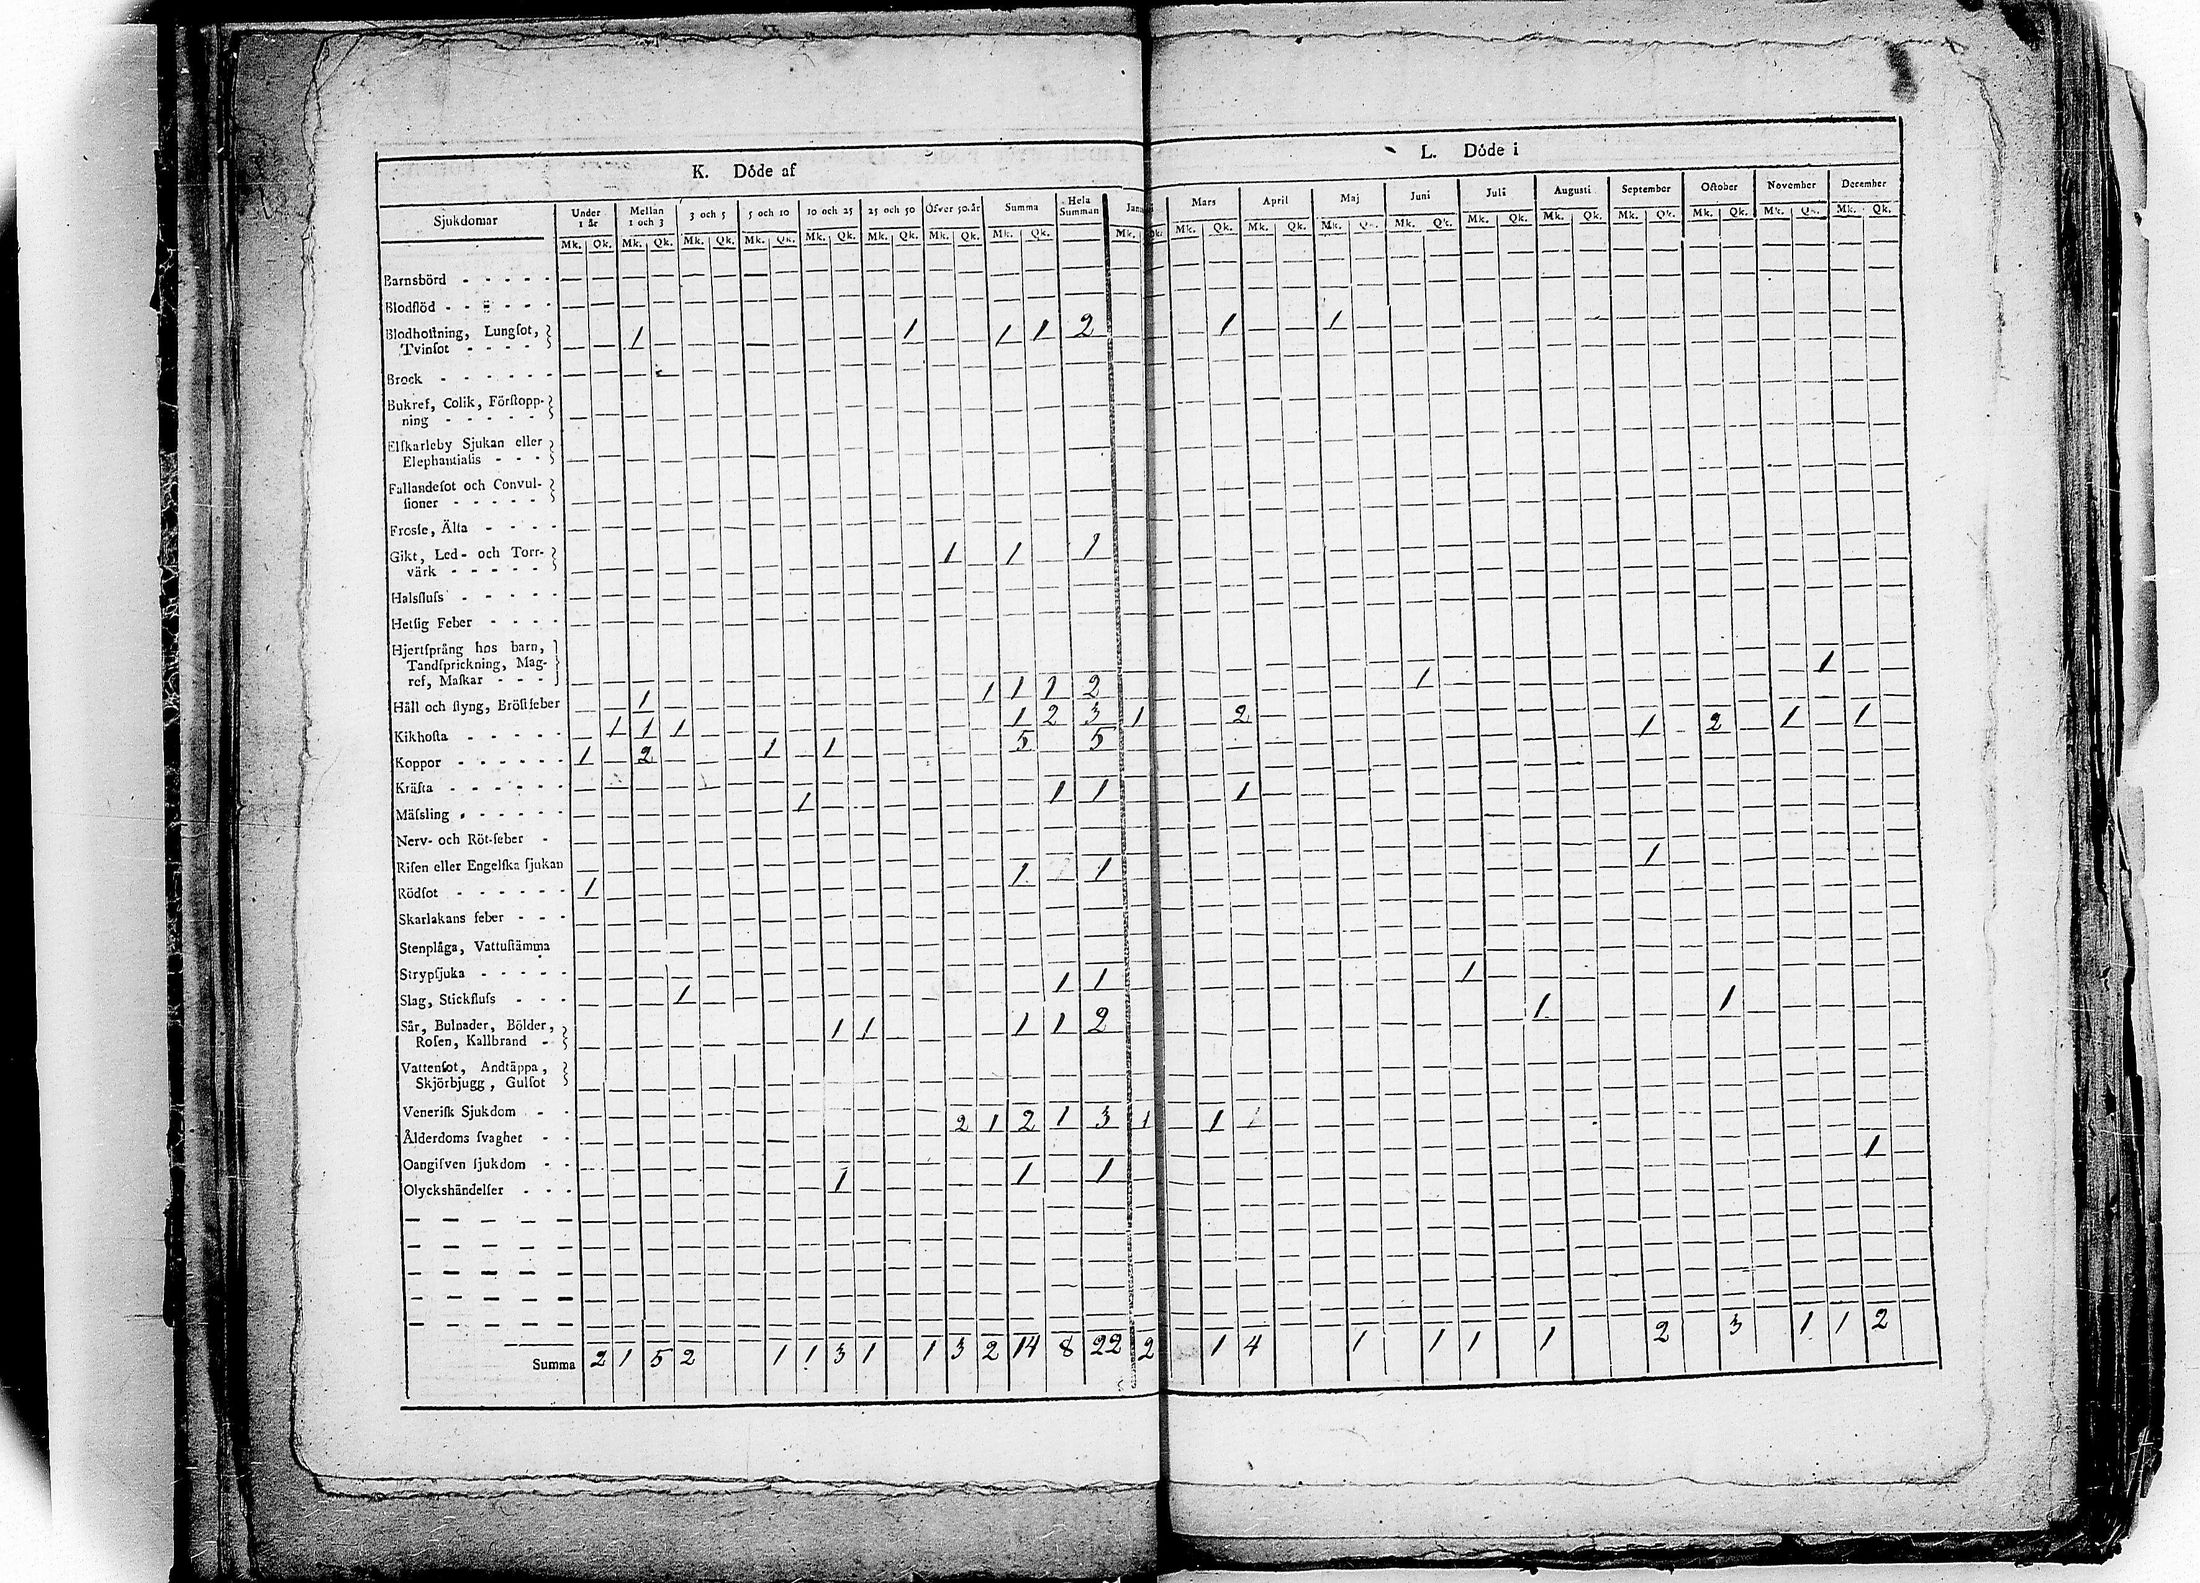 K. Döde af
L. Döde i
Sjukdomar Under 1 år Mellan 1 och 3 3 och 5 5 och 10 10 och 25 25 och 50 Öfver 50 år Summa Hela Summan Mars April Maj Juni Juli Augusti September October November December
Mk. Qk. Mk. Qk. Mk. Qk. Mk. Qk. Mk. Qk. Mk. Qk. Mk. Qk. Mk. Qk. Mk. Qk. Mk. Qk. Mk. Qk. Mk. Qk. Mk. Qk. Mk. Qk. Mk. Qk. Mk. Qk. Mk. Qk. Mk. Qk. Mk. Qk.
Barnsbörd - - - - -
Blodflöd - - - - -
Blodhoſtning, Lungſot, 1 1 1 1 2 1 1
Tvinſot - - - -
Brock - - - - - -
Bukref, Colik, Förſtopp-
ning - - - - -
Elſkarleby Sjukan eller
Elephantiaſis - - -
Fallandeſot och Convul-
ſioner - - - - -
Frosſe, Älta - - - -
Gikt, Led- och Torr- 1 1 1
värk - - - - -
Halsfluſs - - - - -
Hetſig Feber - - - -
Hjertſprång hos barn,
Tandſprickning, Mag-
ref, Maſkar - - -
Håll och ſtyng, Bröſtfeber 1 1 1 1 2 1 1
Kikhoſta - - - - - 1 1 1 1 2 3 1 2
Koppor - - - - - - 1 2 1 1 5 5 1 2 1 1
Kräfta - - - - - -
Mäſsling - - - - - 1 1 1 1
Nerv- och Röt-feber -
Riſen eller Engelſka ſjukan
Rödſot - - - - - - 1 1 1 1
Skarlakans feber - - -
Stenplåga, Vattuſtämma
Strypſjuka - - - - -
Slag, Stickfluſs - - - 1 1 1 1
Sår, Bulnader, Bölder, 1 1 1 1 2 1 1
Roſen, Kallbrand -
Vattenſot, Andtäppa,
Skjörbjugg, Gulſot
Veneriſk Sjukdom - -
Ålderdoms ſvaghet - - 2 1 2 1 3 1 1 1
Oangifven ſjukdom - -
Olyckshändelſer - - - 1 1 1 1
Summa 2 1 5 2 1 1 3 1 1 3 2 14 8 22 2 1 4 1 1 1 1 2 3 1 1 2